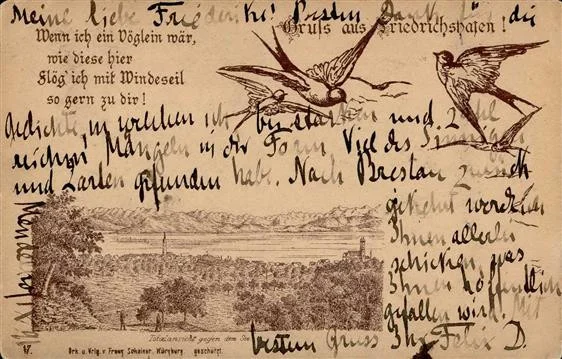 Meine liebe Friederike! Besten Dank für die
Gruss aus Friedrichshafen!
Wenn ich ein Vöglein wär,
wie diese hier
Flög' ich mit Windeseil
so gern zu dir!
Gedichte, in welchen ich bei starken und zahl
reichen Mängeln in der Form Viel des Sinnigen
und Zarten gefunden habe. Nach Breslau zurück
gekehrt werde ich
Ihnen allerlei
schicken, was
Ihnen hoffentlich
gefallen wird. Mit
bestem Gruss Ihr Felix D.
Totalansicht gegen den See
17.
Drk u. Vrlg. v. Franz Scheiner, Würzburg geschützt.